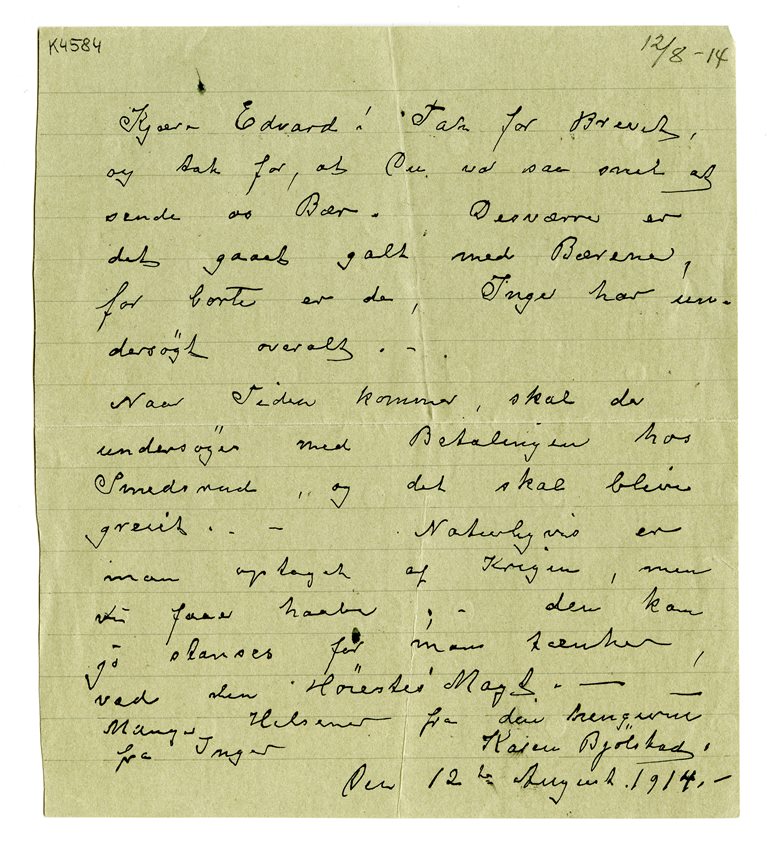 K4584
12/8-14
Kjære Edvard! Tak for Brevet,
og tak for, at Du var saa snil at
sende os Bær. Desværre er
det gaaet galt med Bærene,
for borte er de, Inger har un-
dersögt overalt. -.
Naar Tiden kommer, skal de
undersöges med Betalingen hos
Smedsrud, og det skal blive
greiit. . - Naturligvis er
man optaget af Krigen, men
vi faaer haabe, - den kan
jo stanses för man tænker,
ved den Höiestes Magt. -
Mange Hilsener fra din
fra Inger Karen Bjölstad.
Den 12te August. 1914. -